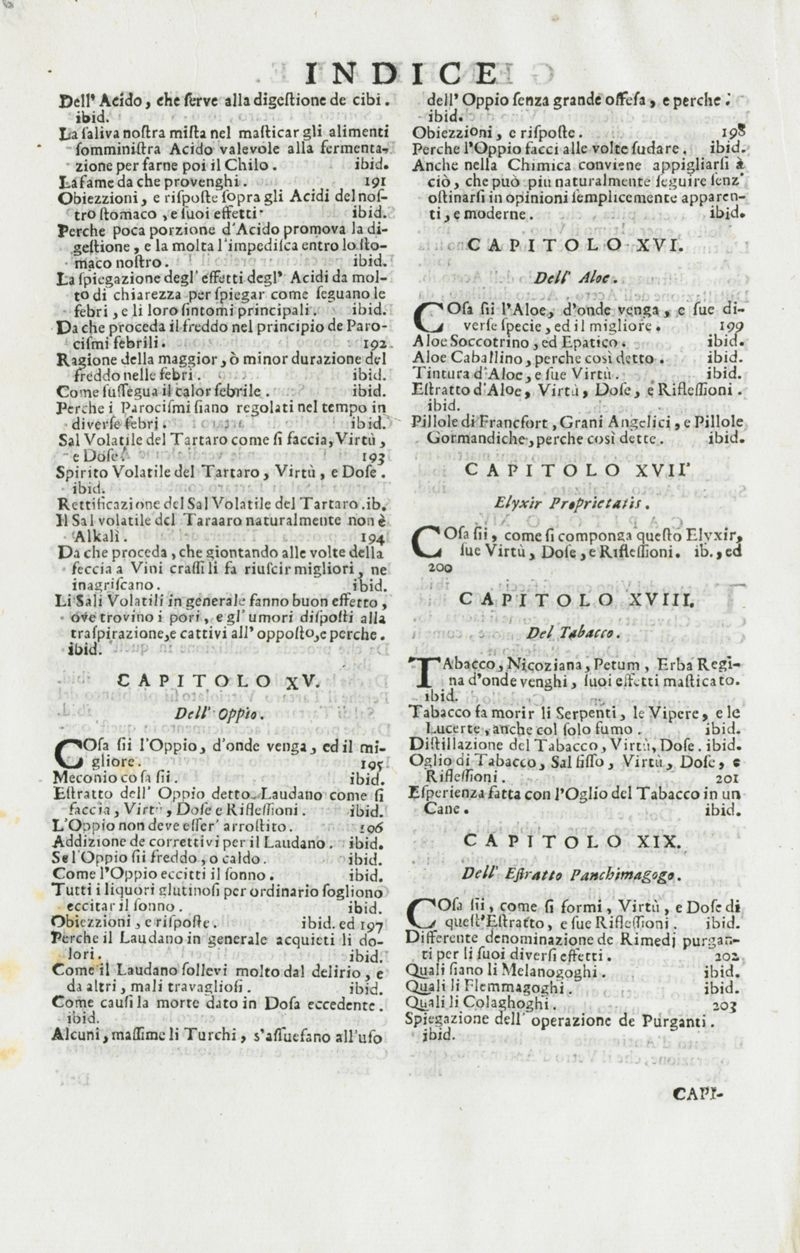 INDICE
Dell' Acido, che ſerve alla digeſtione de cibi.
ibid.
La ſaliva noſtra miſta nel maſticar gli alimenti
ſomminiſtra Acido valevole alla fermenta-
zione per farne poi il Chilo. ibid.
La fame da che provenghi. 191
Obiezzioni, e riſpoſte ſopra gli Acidi del noſ-
tro ſtomaco, e ſuoi effetti. ibid.
Perche poca porzione d'Acido promova la di-
geſtione, e la molta l'impediſca entro lo ſto-
maco noſtro. ibid.
La ſpiegazione degl' effetti degl' Acidi da mol-
to di chiarezza per ſpiegar come ſeguano le
febri, e li loro ſintomi principali. ibid.
Da che proceda il freddo nel principio de Paro-
ciſmi febrili. 192.
Ragione della maggior, ò minor durazione del
freddo nelle febri. ibid.
Come ſuſſegua il calor febrile. ibid.
Perche i Parociſmi ſiano regolati nel tempo in
diverſe febri. ibid.
Sal Volatile del Tartaro come ſi faccia, Virtù,
e Doſe. 193
Spirito Volatile del Tartaro, Virtù, e Doſe.
ibid.
Rettificazione del Sal Volatile del Tartaro. ib.
Il Sal volatile del Taraaro naturalmente non è
Alkalì. 194
Da che proceda, che giontando alle volte della
feccia a Vini craſſi li fa riuſcir migliori, ne
inagriſcano. ibid.
Li Sali Volatili in generale fanno buon effetto,
ove trovino i pori, e gl' umori diſpoſti alla
traſpirazione, e cattivi all' oppoſto, e perche.
ibid.
CAPITOLO XV.
Dell' Oppio.
COſa ſii l'Oppio, d'onde venga, ed il mi-
gliore. 195
Meconio coſa ſii. ibid.
Eſtratto dell' Oppio detto Laudano come ſi
faccia, Virtù, Doſe e Rifleſſioni. ibid.
L'Oppio non deve eſſer' arroſtito. 196
Addizione de correttivi per il Laudano. ibid.
Se l'Oppio ſii freddo, o caldo. ibid.
Come l'Oppio eccitti il ſonno. ibid.
Tutti i liquori glutinoſi per ordinario ſogliono
eccitar il ſonno. ibid.
Obiezzioni, e riſpoſte. ibid. ed 197
Perche il Laudano in generale acquieti li do-
lori. ibid.
Come il Laudano ſollevi molto dal delirio, e
da altri, mali travaglioſi. ibid.
Come cauſi la morte dato in Doſa eccedente.
ibid.
Alcuni, maſſime li Turchi, s'aſſuefano all'uſo
dell' Oppio ſenza grande offeſa, e perche.
ibid.
Obiezzioni, e riſpoſte. 198
Perche l'Oppio facci alle volte ſudare. ibid.
Anche nella Chimica conviene appigliarſi à
ciò, che può piu naturalmente ſeguire ſenz'
oſtinarſi in opinioni ſemplicemente apparen-
ti, e moderne. ibid.
CAPITOLO XVI.
Dell' Aloe.
COſa ſii l'Aloe, d'onde venga, e ſue di-
verſe ſpecie, ed il migliore. 199
Aloe Soccotrino, ed Epatico. ibid.
Aloe Caballino, perche così detto. ibid.
Tintura d'Aloe, e ſue Virtù. ibid.
Eſtratto d'Aloe, Virtù, Doſe, e Rifleſſioni.
ibid.
Pillole di Francfort, Grani Angelici, e Pillole
Gormandiche, perche così dette. ibid.
CAPITOLO XVII
Elyxir Proprietatis.
COſa ſii, come ſi componga queſto Elyxir,
ſue Virtù, Doſe, e Rifleſſioni. ib., ed
200
CAPITOLO XVIII.
Del Tabacco.
TAbacco, Nicoziana, Petum, Erba Regi-
na d'onde venghi, ſuoi effetti maſticato.
ibid.
Tabacco fa morir li Serpenti, le Vipere, e le
Lucerte, anche col ſolo fumo. ibid.
Diſtillazione del Tabacco, Virtù, Doſe. ibid.
Oglio di Tabacco, Sal fiſſo, Virtù, Doſe, e
Rifleſſioni. 201
Eſperienza fatta con l'Oglio del Tabacco in un
Cane. ibid.
CAPITOLO XIX.
Dell' Eſtratto Panchimagogo.
COſa ſii, come ſi formi, Virtù, e Doſe di
queſt'Eſtratto, e ſue Rifleſſioni. ibid.
Differente denominazione de Rimedj purgan-
ti per li ſuoi diverſi effetti. 202
Quali ſiano li Melanogoghi. ibid.
Quali li Flemmagoghi. ibid.
Quali li Colaghoghi. 203
Spiegazione dell' operazione de Purganti.
ibid.
CAPI-